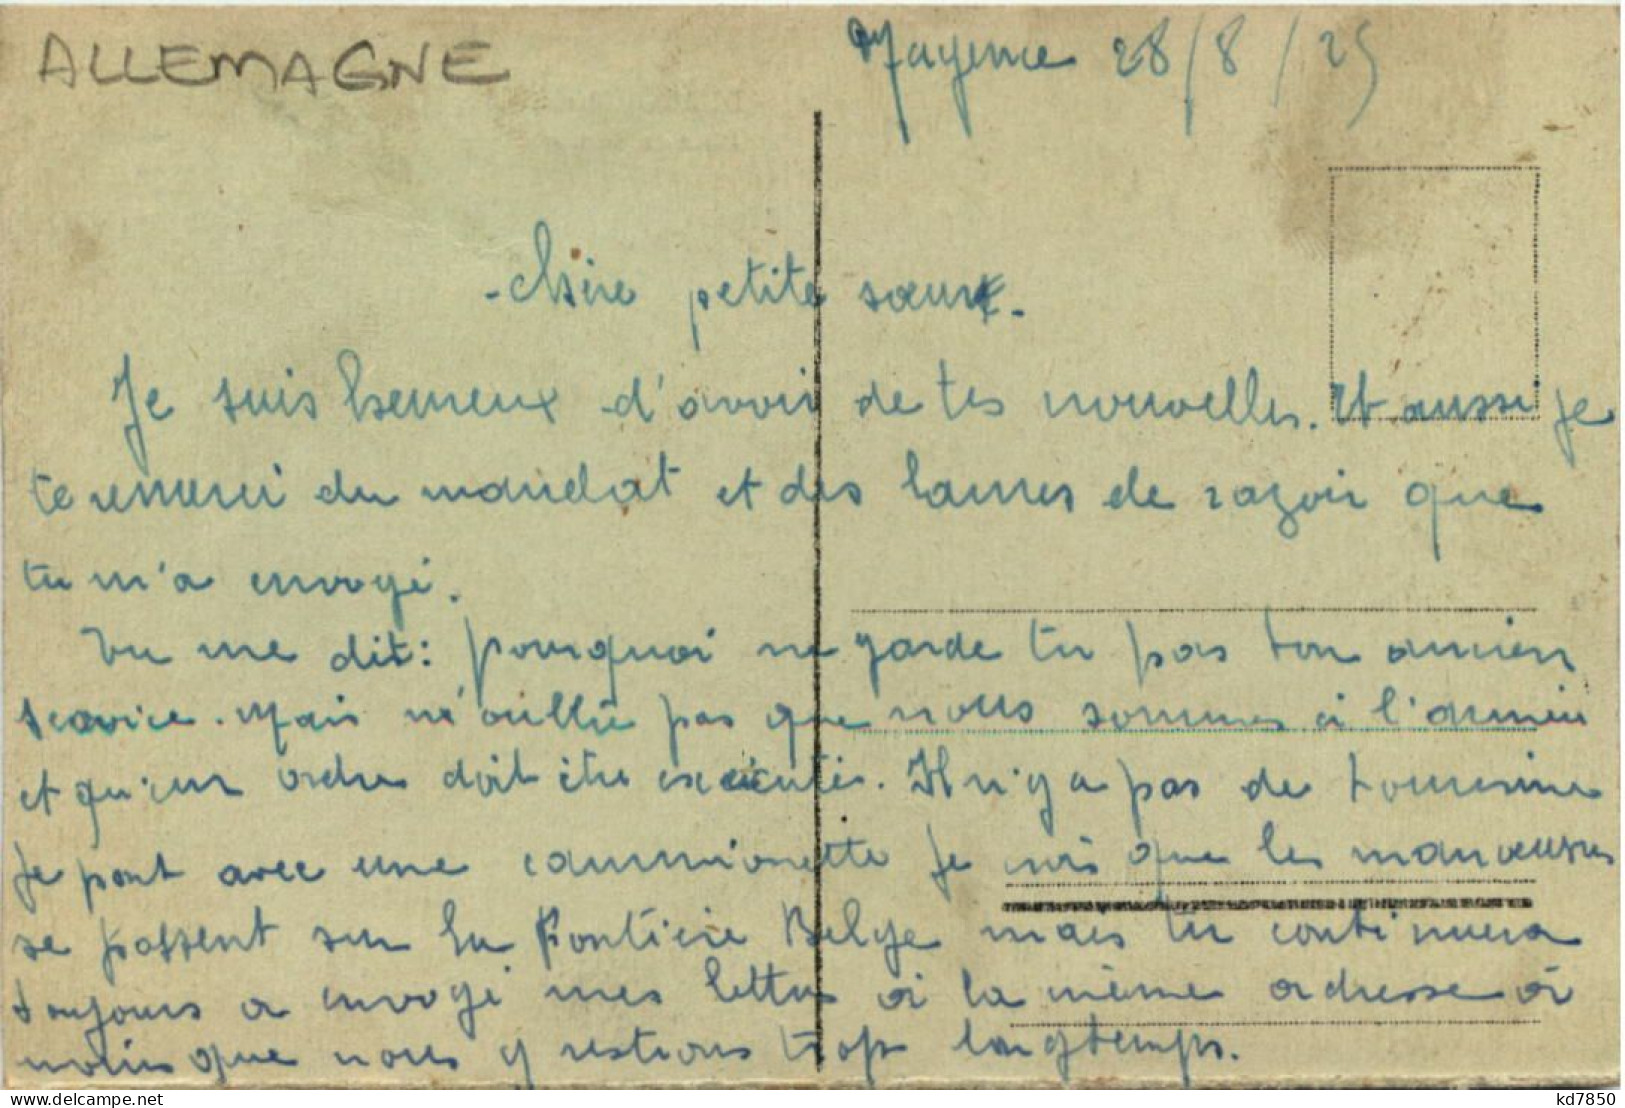 ALLEMAGNE
Mayence 28/8/25
-Chère petite sœur.
Je suis heureux d'avoir de tes nouvelles. Et aussi je
te remerci du mandat et des lames de razoir que
tu m'a envoyé.
Tu me dit: pourquoi ne garde tu pas ton ancien
service. Mais n'oublie pas que nous sommes à l'armée
et qu'un ordre doit être executés. Il n'y a pas de
je part avec une cammionette je crois que les manœuvres
se passent sur la Frontière Belge mais tu continuera
toujours a envoyé mes lettres à la même adresse à
moins que nous y restions trop longtemps.
kd7850